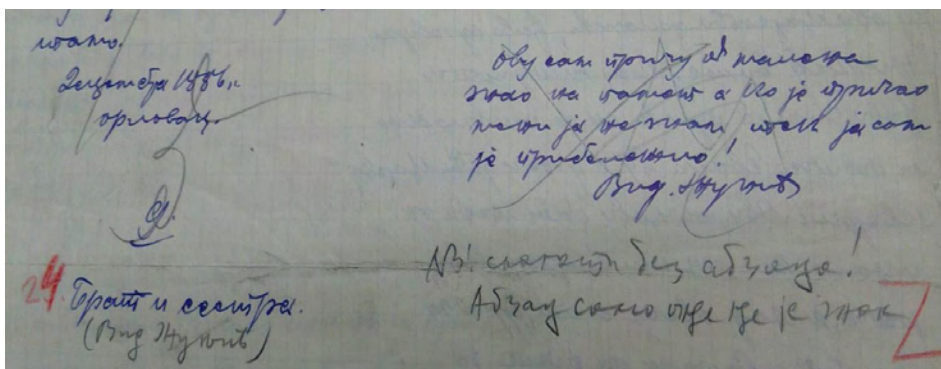 2 децембра 1886 г.
орловац.
Ову сам причу од малена
знао на памет а ко је причао
мени ја не знам ипак ја сам
је прибележио!
Вид. Жунић
24. Брат и сестра.
(Вид Жунић)
NB! слагати без абзаца!
Абзац само онде где је знак